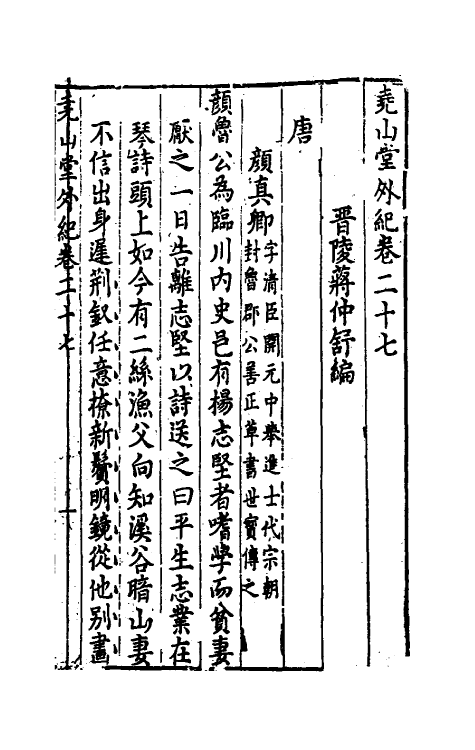 堯山堂外紀卷二十七
晋陵蔣仲舒編
唐
顔真卿字清臣開元中舉進士代宗朝
封魯郡公善正草書世寳傳之
顔魯公為臨川内史邑有楊志堅者嗜學而貧妻
厭之一日告離志堅以詩送之曰平生志業在
琴詩頭上如今有二絲漁父向知溪谷暗山妻
不信出身遲荆釵任意撩新鬢明鏡從他别畫
堯山堂外紀卷二十七 一